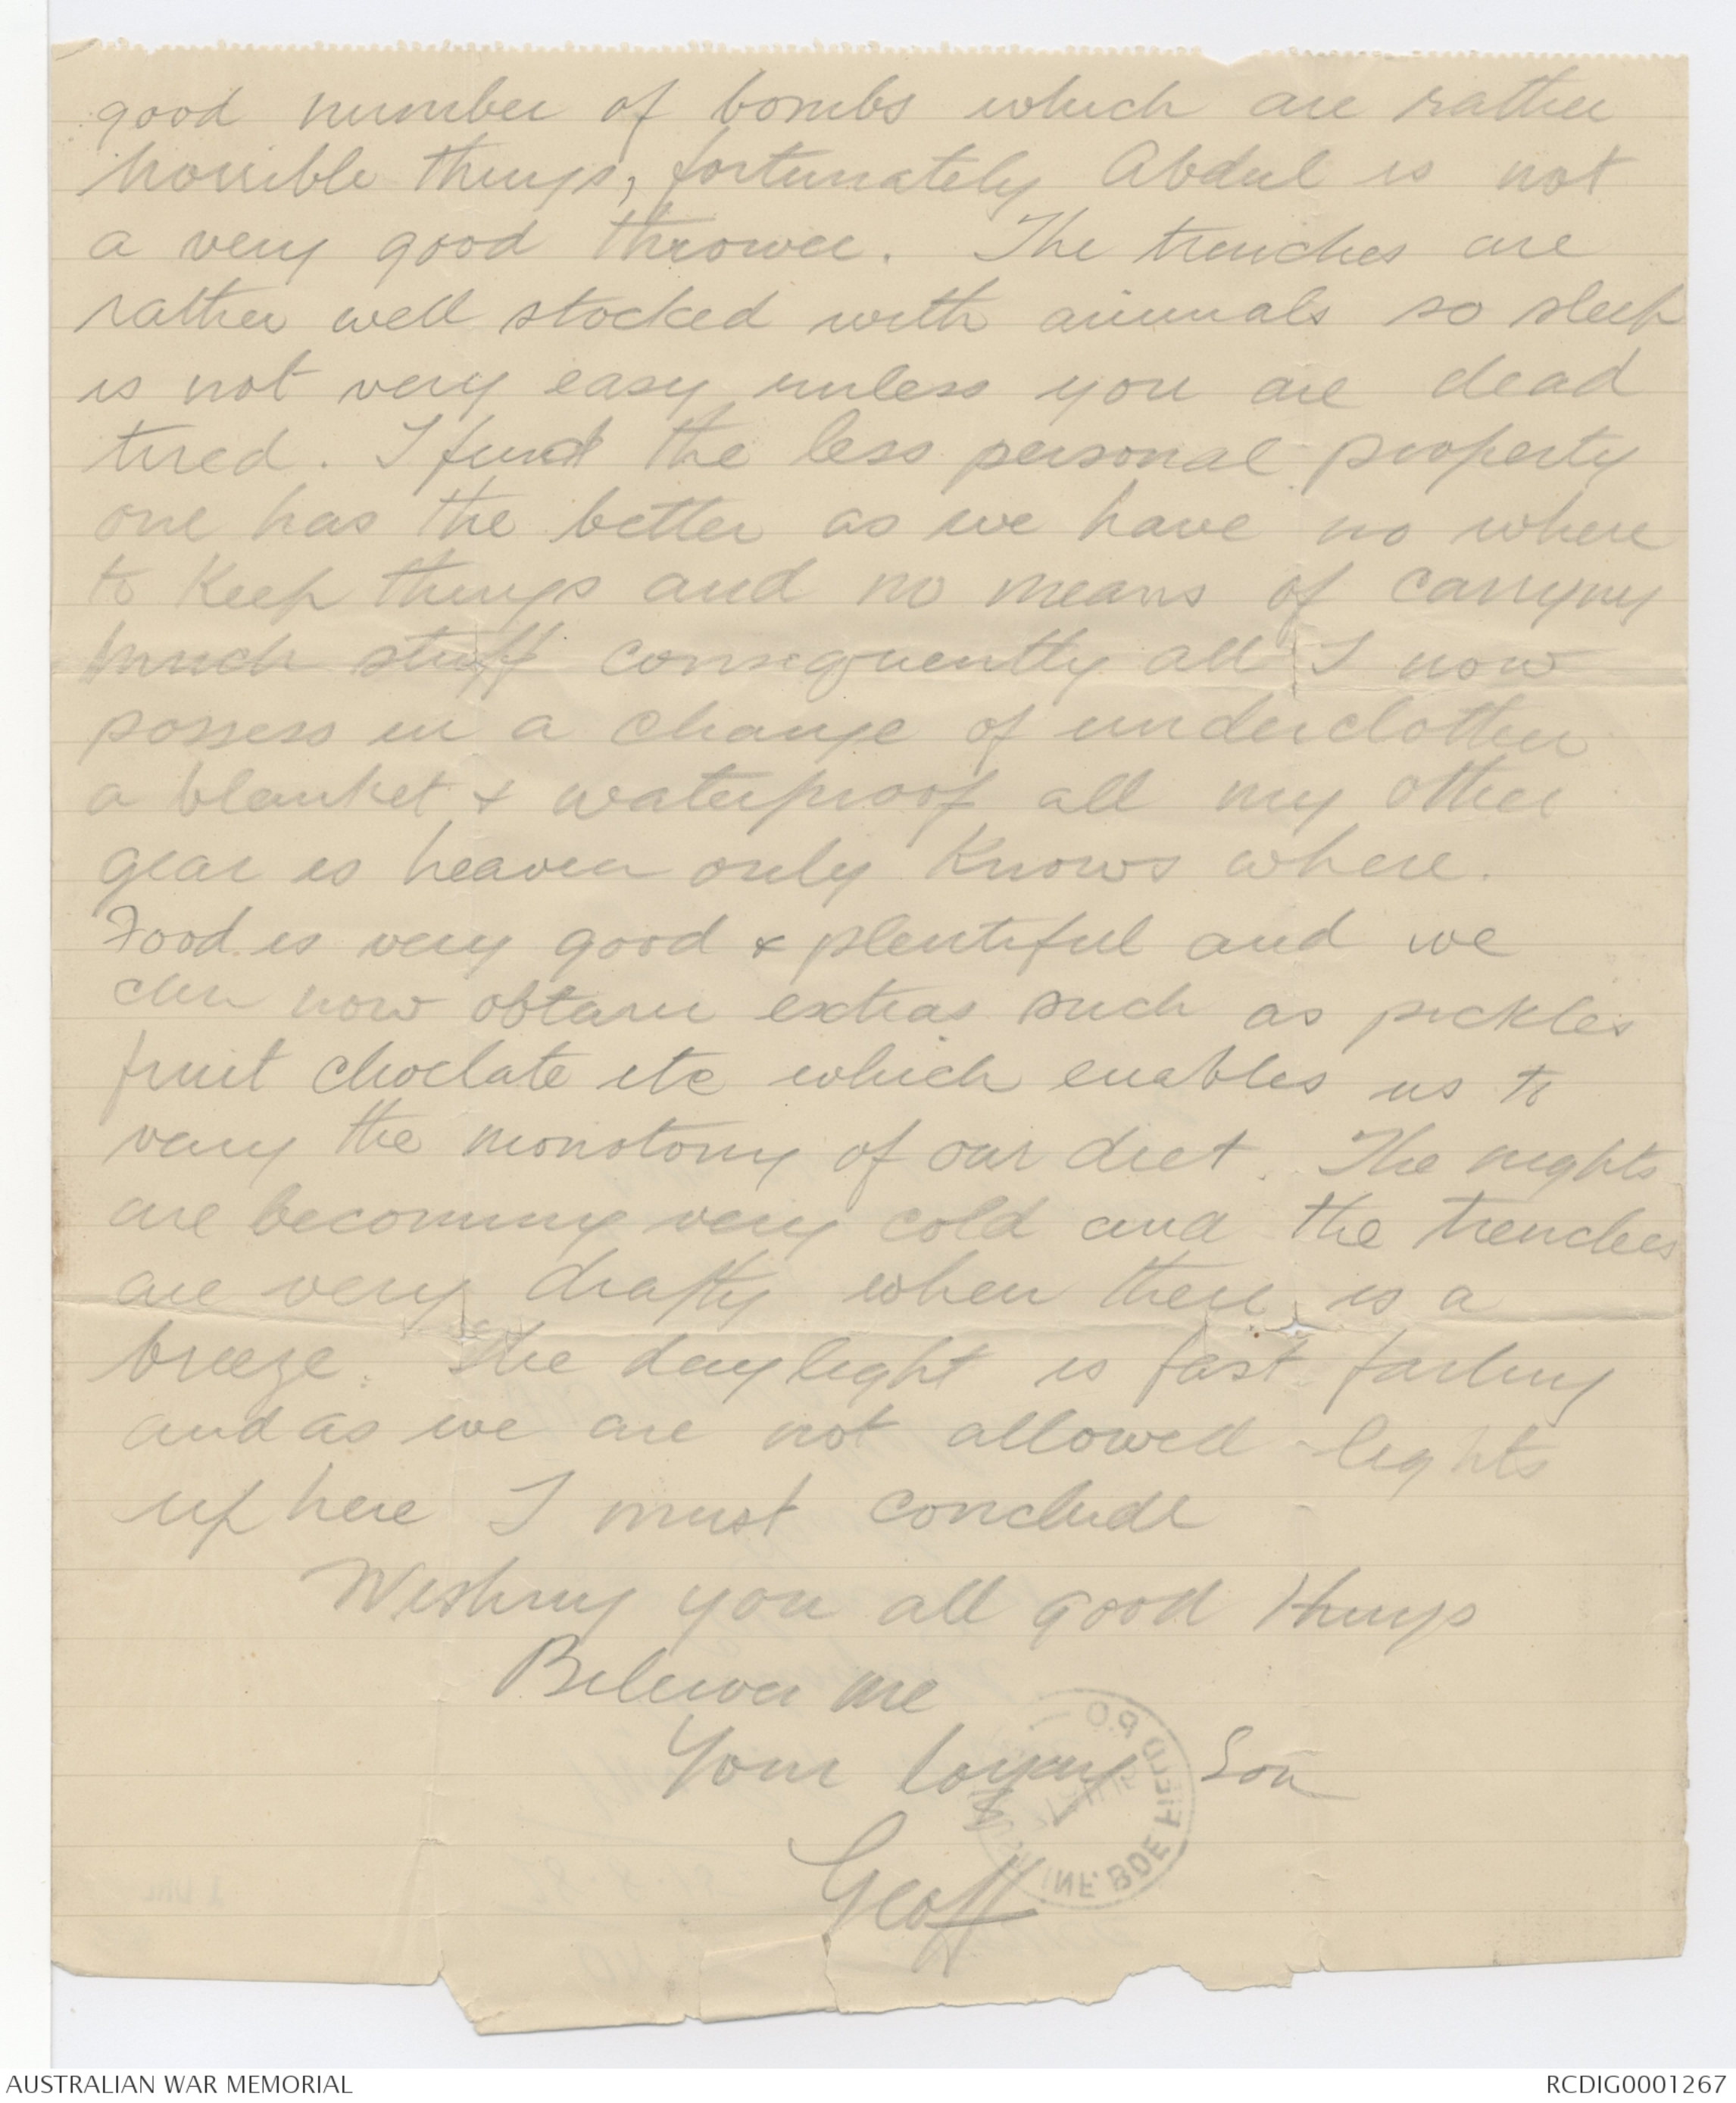 good number of bombs which are rather
horrible things, fortunately Abdul is not
a very good thrower. The trenches are
rather well stocked with animals so sleep
is not very easy unless you are dead
tired. I find the less personal property
one has the better as we have no where
to keep things and no means of carrying
much stuff consequently all I now
possess is a change of underclothes
a blanket & waterproof all my other
gear is heaven only knows where.
Food is very good & plentiful and we
can now obtain extras such as pickles
fruit choclate etc which enables us to
vary the monotony of our diet. The nights
are becoming very cold and the trenches
are very drafty when there is a
breeze. The daylight is fast failing
and as we are not allowed lights
up here I must conclude
Wishing you all good things
Believe me
Your loving Son
Geoff
INF. BDE FIELD P.O
AUSTRALIAN WAR MEMORIAL
RCDIG0001267